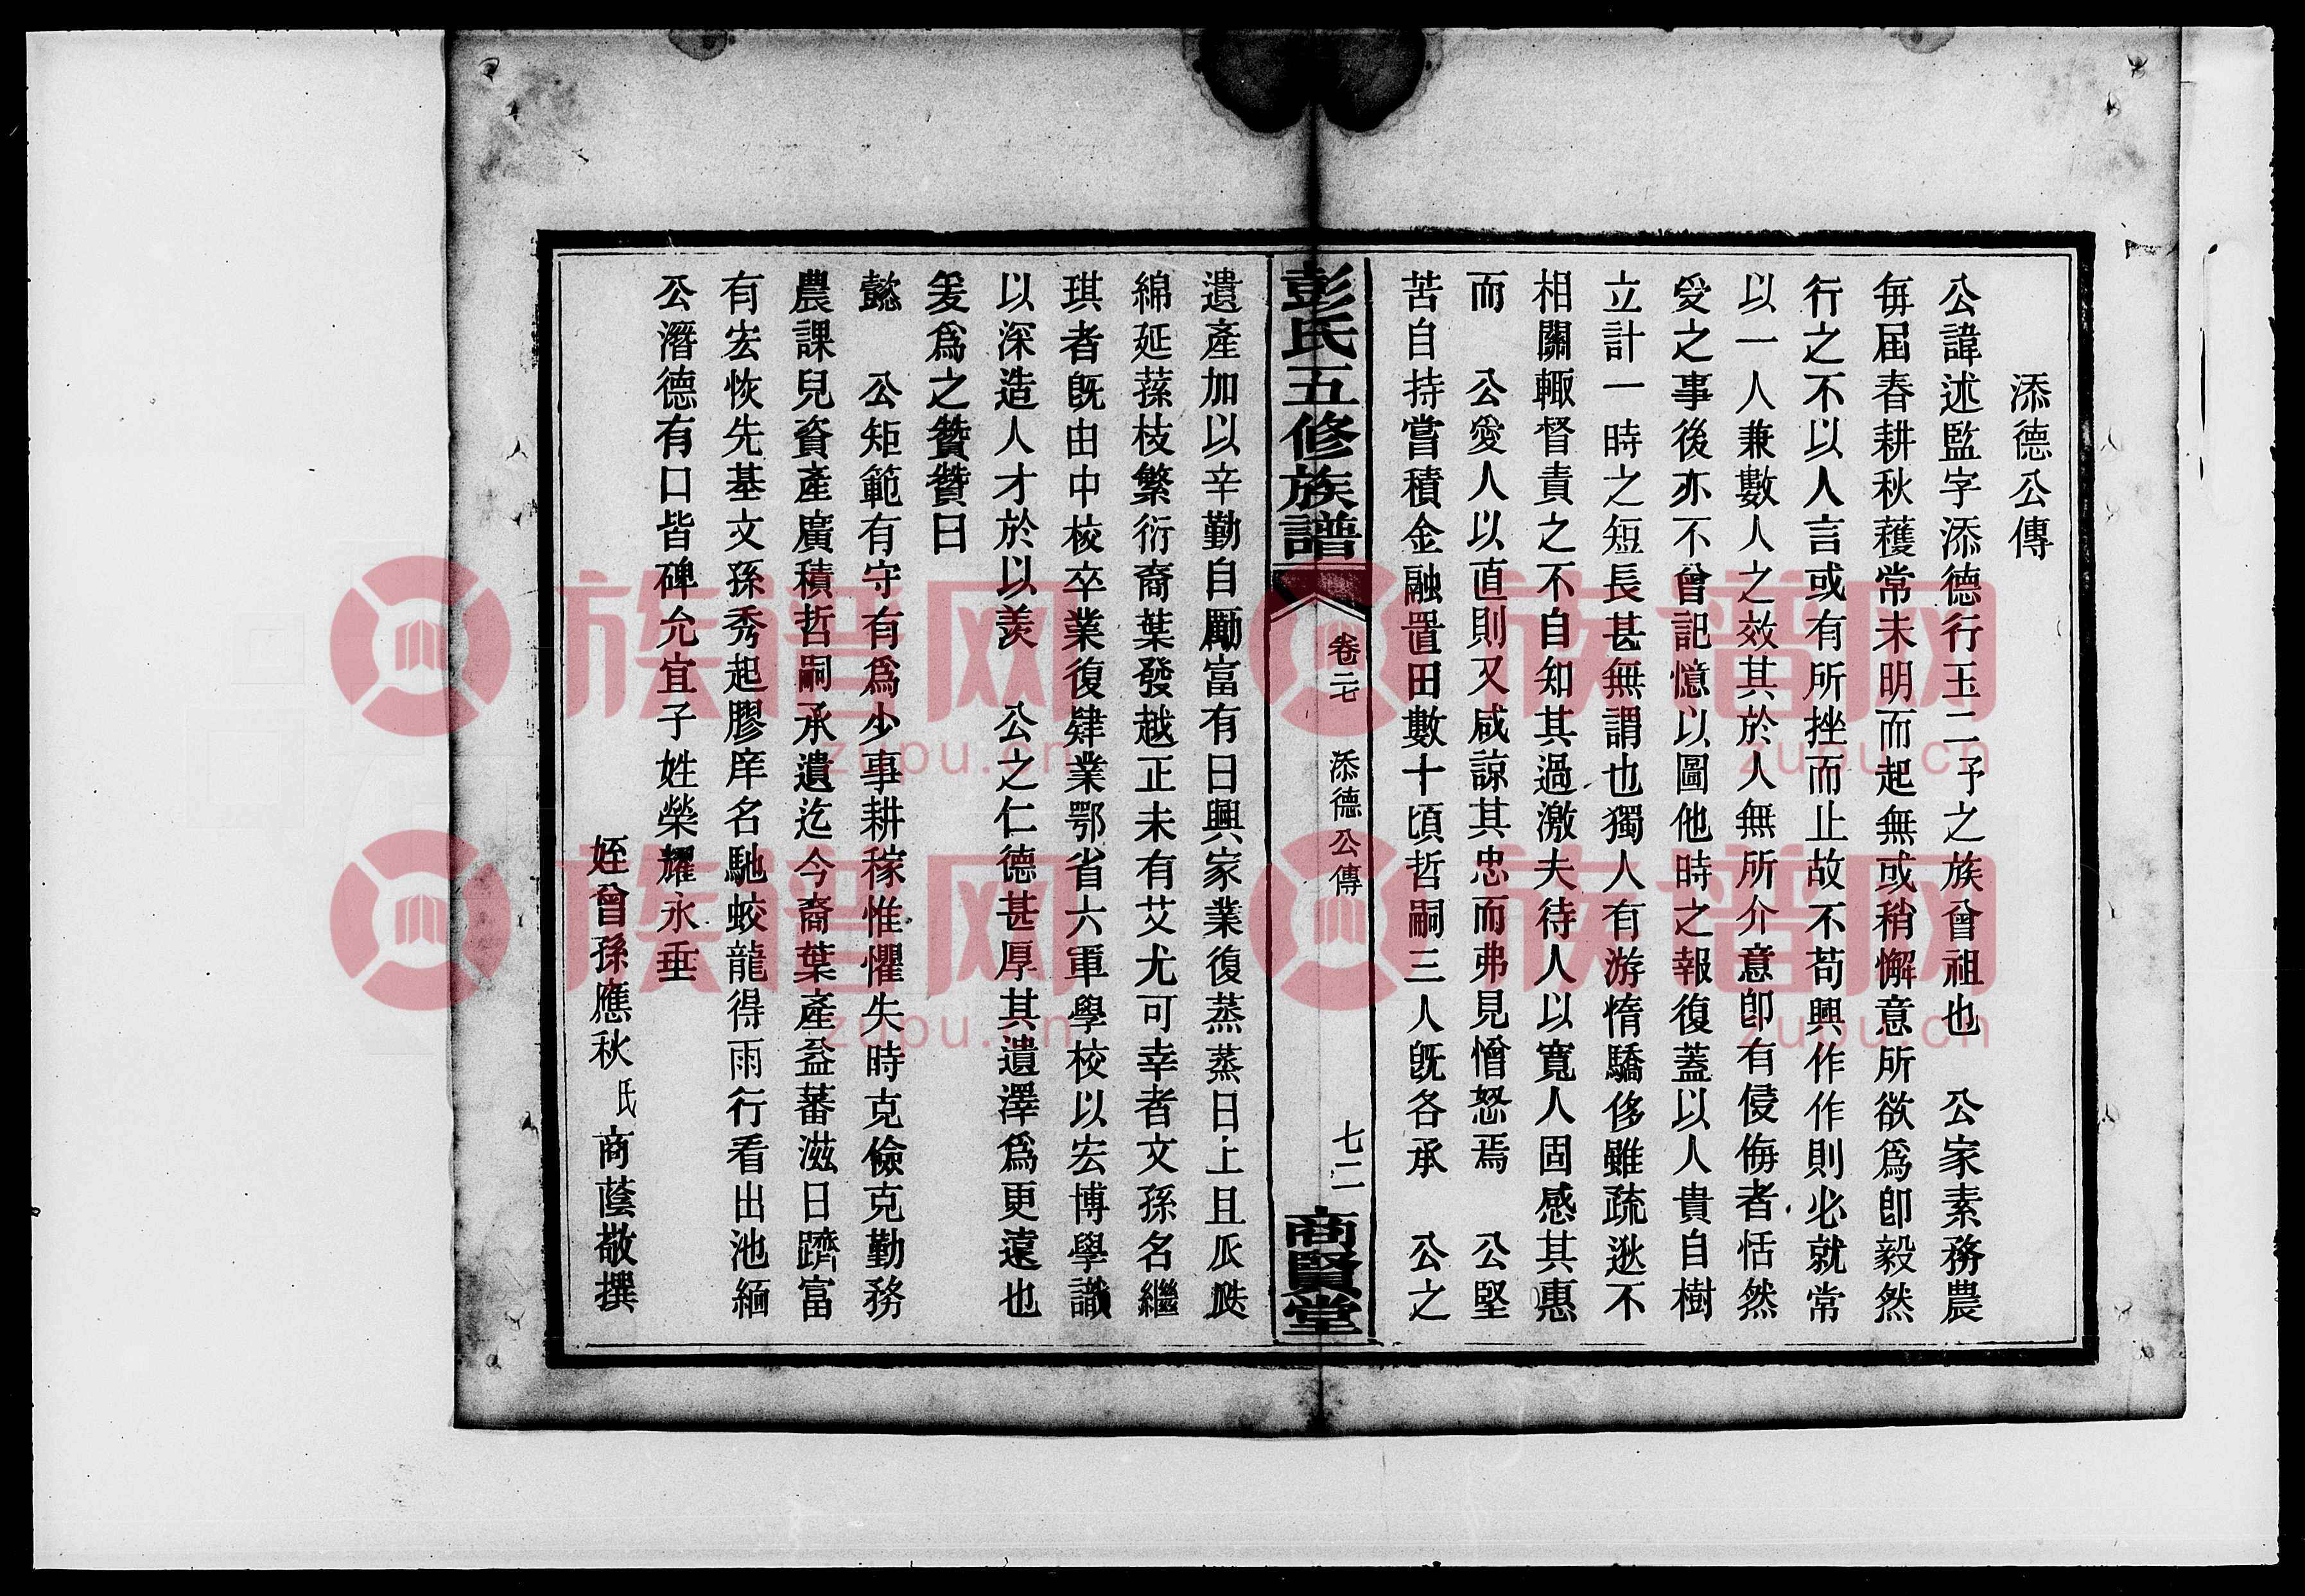 添德公傳
公諱述監字添德行玉二予之族曾祖也　公家素務農
每屆春耕秋穫常未明而起無或稍懈意所欲爲卽毅然
行之不以人言或有所挫而止故不苟興作作則必就常
以一人兼數人之效其於人無所介意卽有侵侮者恬然
受之事後亦不曾記憶以圖他時之報復蓋以人貴自樹
立計一時之短長甚無謂也獨人有游惰驕侈雖疏逖不
相關輙督責之不自知其過激夫待人以寬人固感其惠
而　公愛人以直則又咸諒其忠而弗見憎怒焉　公堅
苦自持嘗積金融置田數十頃哲嗣三人旣各承　公之
彭氏五修族譜　卷二七　添德公傳　七二　商賢堂
遺產加以辛勤自勵富有日興家業復蒸蒸日上且瓜瓞
綿延蓀枝繁衍裔葉發越正未有艾尤可幸者文孫名繼
琪者旣由中校卒業復肄業鄂省六軍學校以宏博學識
以深造人才於以羨　公之仁德甚厚其遺澤爲更遠也
爰爲之贊贊曰
懿　公矩範有守有爲少事耕稼惟懼失時克儉克勤務
農課兒資產廣積哲嗣承遺迄今裔葉產益蕃滋日躋富
有宏恢先基文孫秀起膠庠名馳蛟龍得雨行看出池緬
公潛德有口皆碑允宜子姓榮耀永垂
姪曾孫應秋氏商蔭敬撰
族谱网
zupu.cn
族谱网
zupu.cn
族谱网
zupu.cn
族谱网
zupu.cn